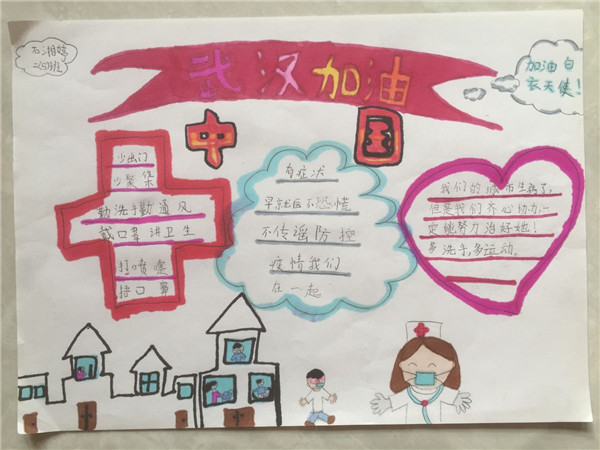 石湘婷
二(5)班
武汉加油
加油白
衣天使!
中国
少出门
少聚集
勤洗手勤通风
戴口罩讲卫生
打喷嚏
捂口鼻
有症状
早就医不恐慌
不传谣防控
疫情我们
在一起
我们的城市生病了,
但是我们齐心协力,一
定能努力治好她!
多洗手,多运动。